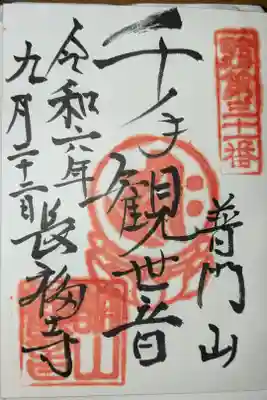 普門山
千手観世音
令和六年
九月二十二日
長福寺